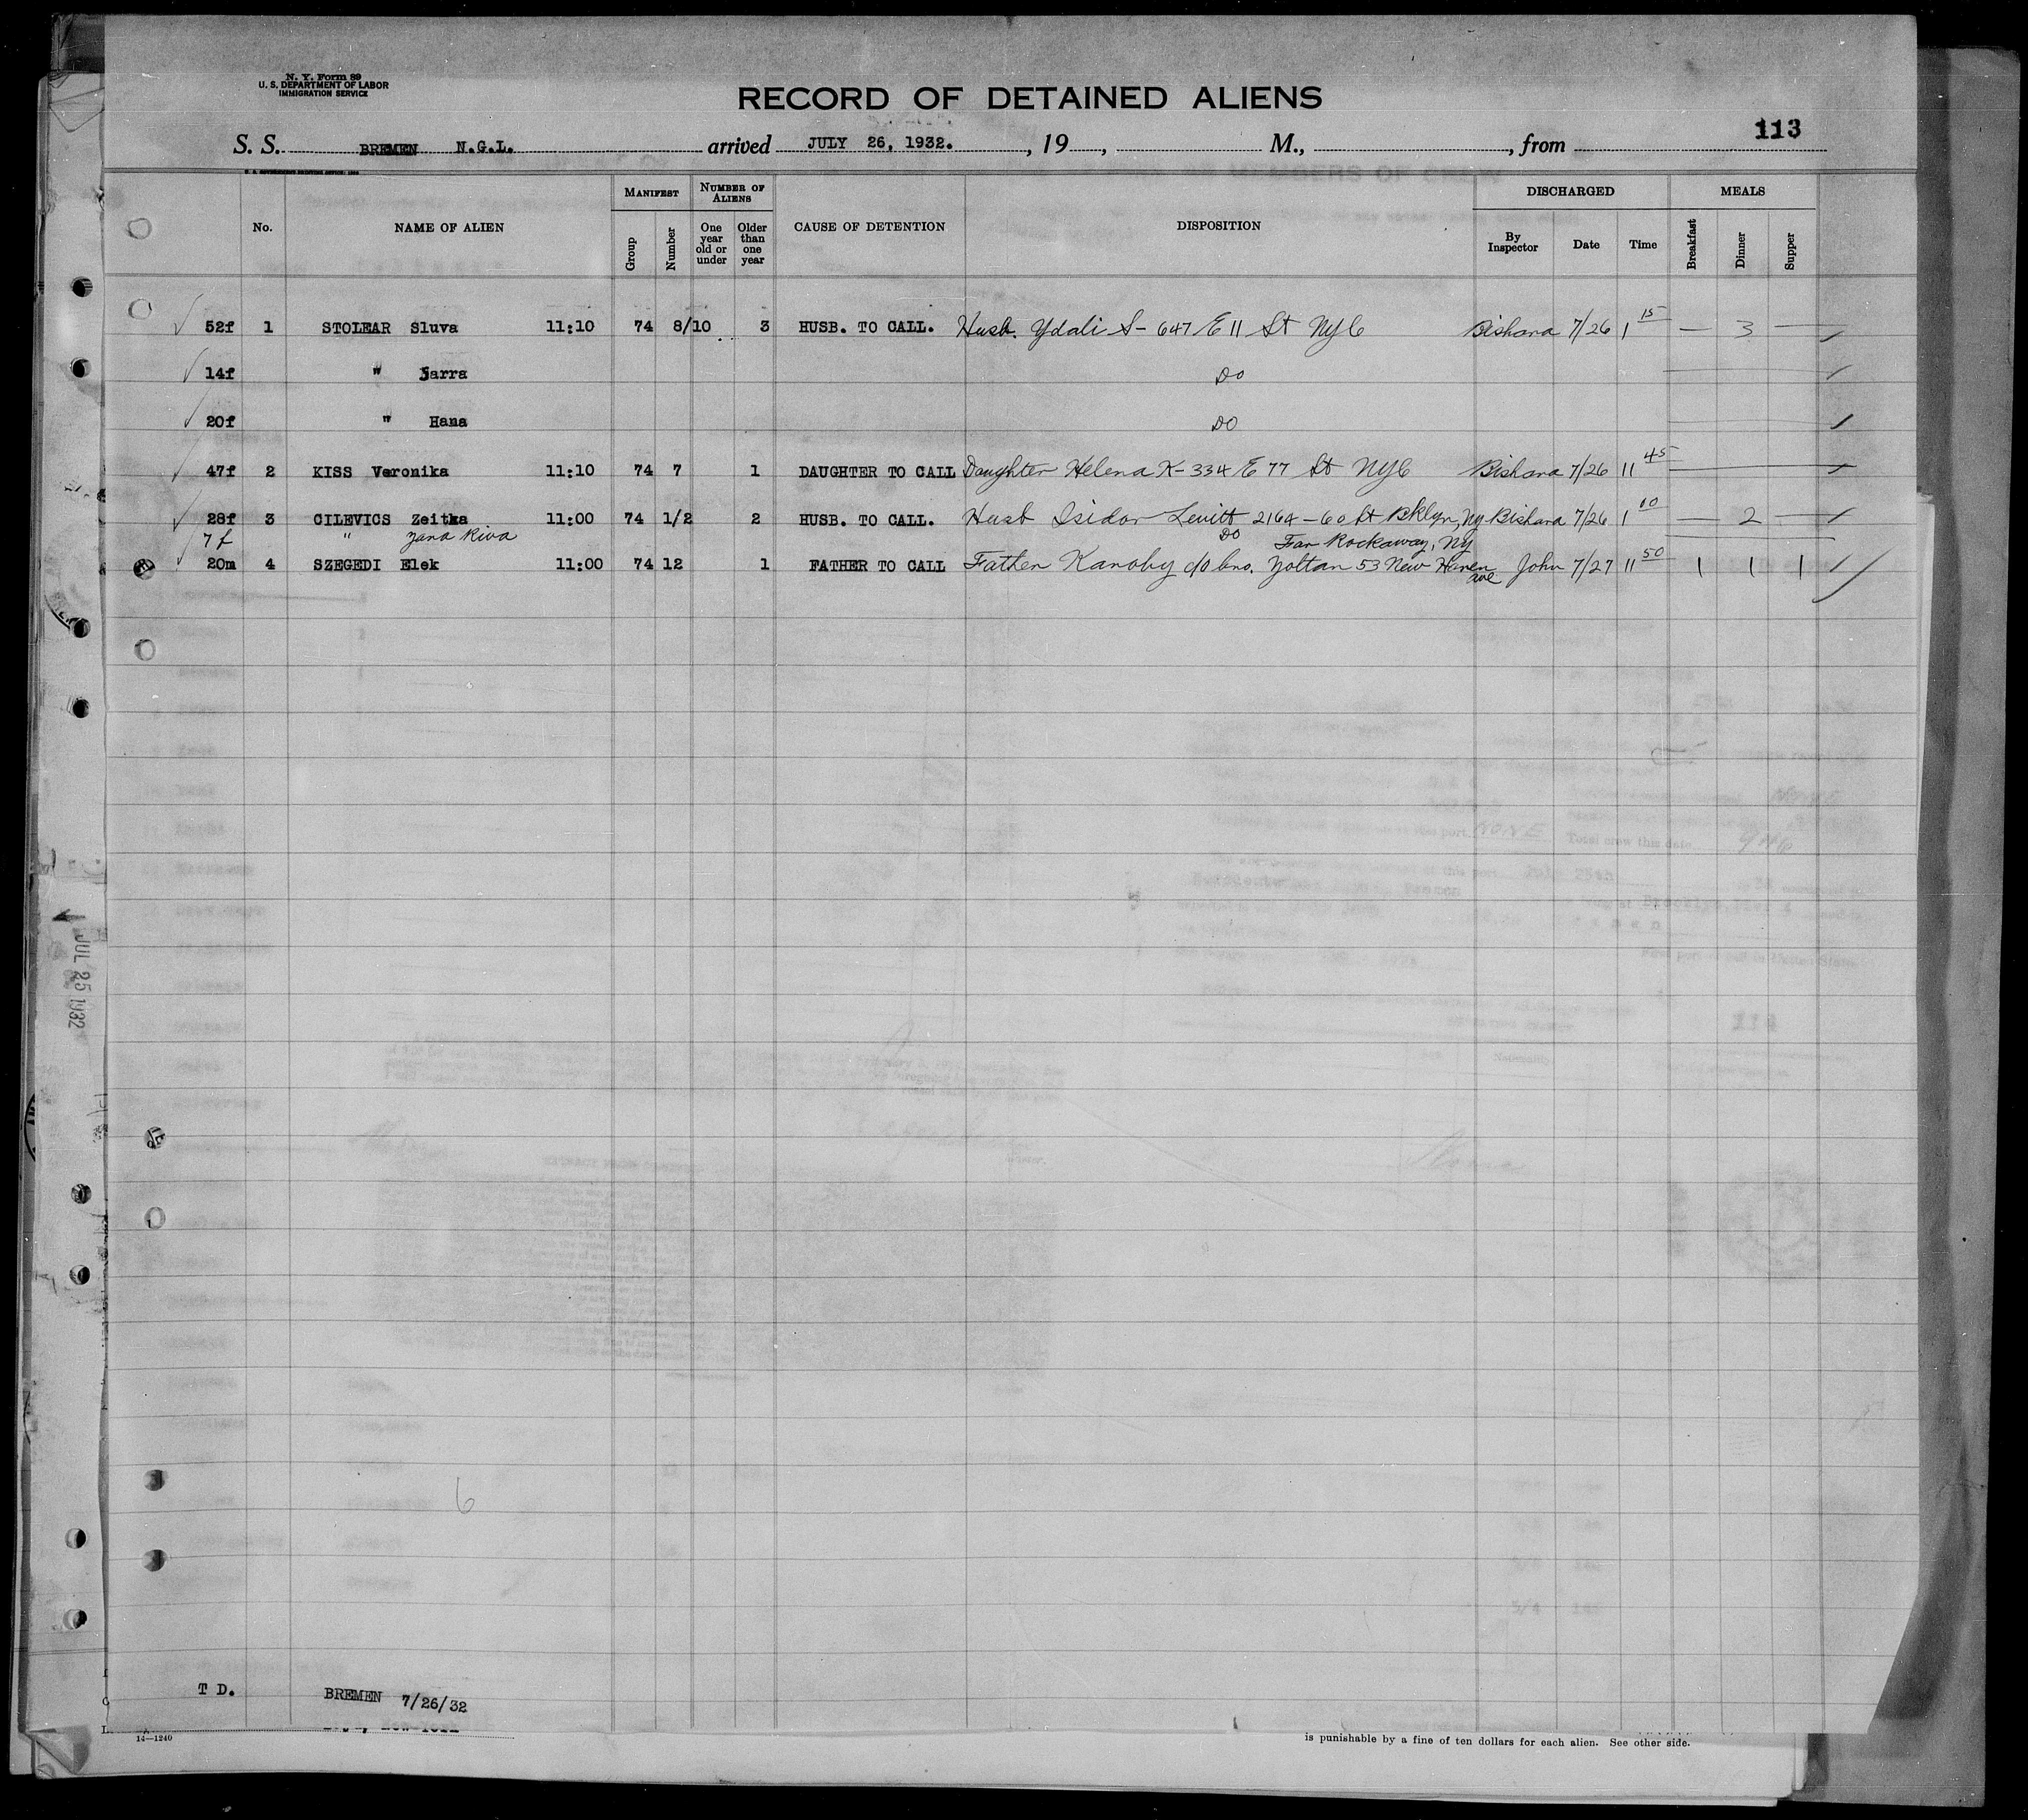 N. Y. Form 89
U. S. DEPARTMENT OF LABOR
IMMIGRATION SERVICE
RECORD OF DETAINED ALIENS
113
S. S. BREMEN N.G.L. arrived JULY 26, 1932. , 19 , M., , from
No. NAME OF ALIEN MANIFEST NUMBER OF ALIENS CAUSE OF DETENTION DISPOSITION DISCHARGED MEALS
Group Number One year old or under Older than one year By Inspector Date Time Breakfast Dinner Supper
52f 1 STOLEAR Sluva 11:10 74 8/10 3 HUSB. TO CALL. Husb. Ydali S- 647 E 11 St NYC Bishara 7/26 1 15 — 3 —
14f " Sarra DO
20f " Hana DO
47f 2 KISS Veronika 11:10 74 7 1 DAUGHTER TO CALL Daughter Helena K- 334 E 77 St NYC Bishara 7/26 11 45
28f 3 CILEVICS Zeitka 11:00 74 1/2 2 HUSB. TO CALL. Husb Isidor Levitt 2164 - 60 St Bklyn, Ny Bishara 7/26 1 10 — 2 —
7f " Zana Riva DO Far Rockaway, Ny
20m 4 SZEGEDI Elek 11:00 74 12 1 FATHER TO CALL Father Karoby c/o bro. Zoltan 53 New Haven ave John 7/27 11 50 1 1 1
JUL 25 1932
6
T D. BREMEN 7/26/32
14—1240
is punishable by a fine of ten dollars for each alien. See other side.